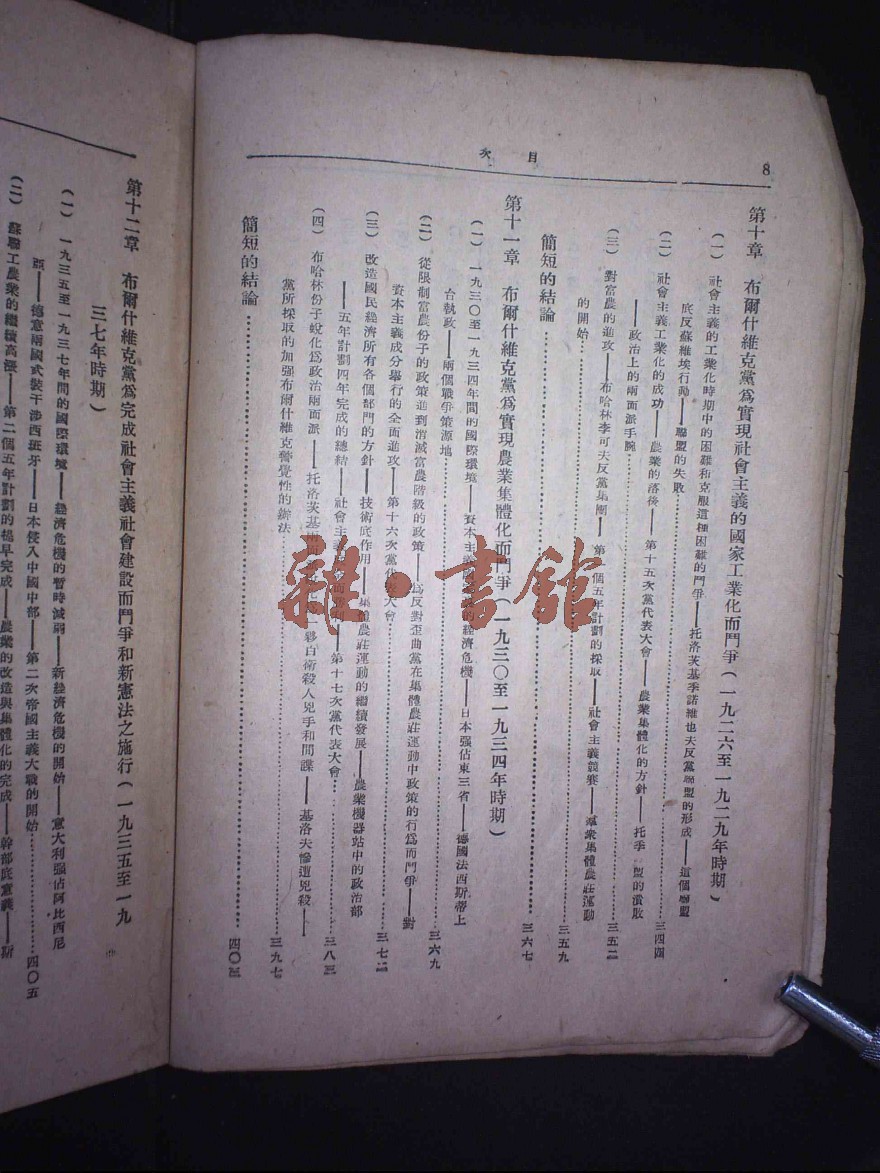 8
目 次
第十章 布爾什維克黨爲實現社會主義的國家工業化而鬥爭（一九二六至一九二九年時期）
（一） 社會主義的工業化時期中的困難和克服這種困難的鬥爭——托洛茨基季諾維也夫反黨聯盟的形成——這個聯盟
底反蘇維埃行動——聯盟的失敗 三四四
（二） 社會主義工業化的成功——農業的落後——第十五次黨代表大會——農業集體化的方針——托季 盟的潰敗
——政治上的兩面派手腕 三五二
（三） 對富農的進攻——布哈林李可夫反黨集團——第一個五年計劃的採取——社會主義競賽——羣衆集體農莊運動
的開始 三五九
簡短的結論 三六七
第十一章 布爾什維克黨爲實現農業集體化而鬥爭（一九三〇至一九三四年時期）
（一） 一九三〇至一九三四年間的國際環境——資本主義 的經濟危機——日本强佔東三省——德國法西斯蒂上
台執政——兩個戰爭策源地 三六九
（二） 從限制富農份子的政策進到消滅富農階級的政策——爲反對歪曲黨在集體農莊運動中政策的行爲而鬥爭——對
資本主義成分舉行的全面進攻——第十六次黨 大會 三七二
（三） 改造國民經濟所有各個部門的方針——技術底作用——集體農莊運動的繼續發展——農業機器站中的政治部
——五年計劃四年完成的總結——社會主義 勝利——第十七次黨代表大會 三八三
（四） 布哈林份子蛻化爲政治兩面派——托洛茨基兩面 夥白衛殺人兇手和間諜——基洛夫慘遭兇殺——
黨所採取的加强布爾什維克警覺性的辦法 三九七
簡短的結論 四〇三
第十二章 布爾什維克黨爲完成社會主義社會建設而鬥爭和新憲法之施行（一九三五至一九
三七年時期）
（一） 一九三五至一九三七年間的國際環境——經濟危機的暫時減弱——新經濟危機的開始——意大利强佔阿比西尼
亞——德意兩國武裝干涉西班牙——日本侵入中國中部——第二次帝國主義大戰的開始 四〇五
（二） 蘇聯工農業的繼續高漲——第二個五年計劃的提早完成——農業的改造與集體化的完成——幹部底意義——斯
雜·書館